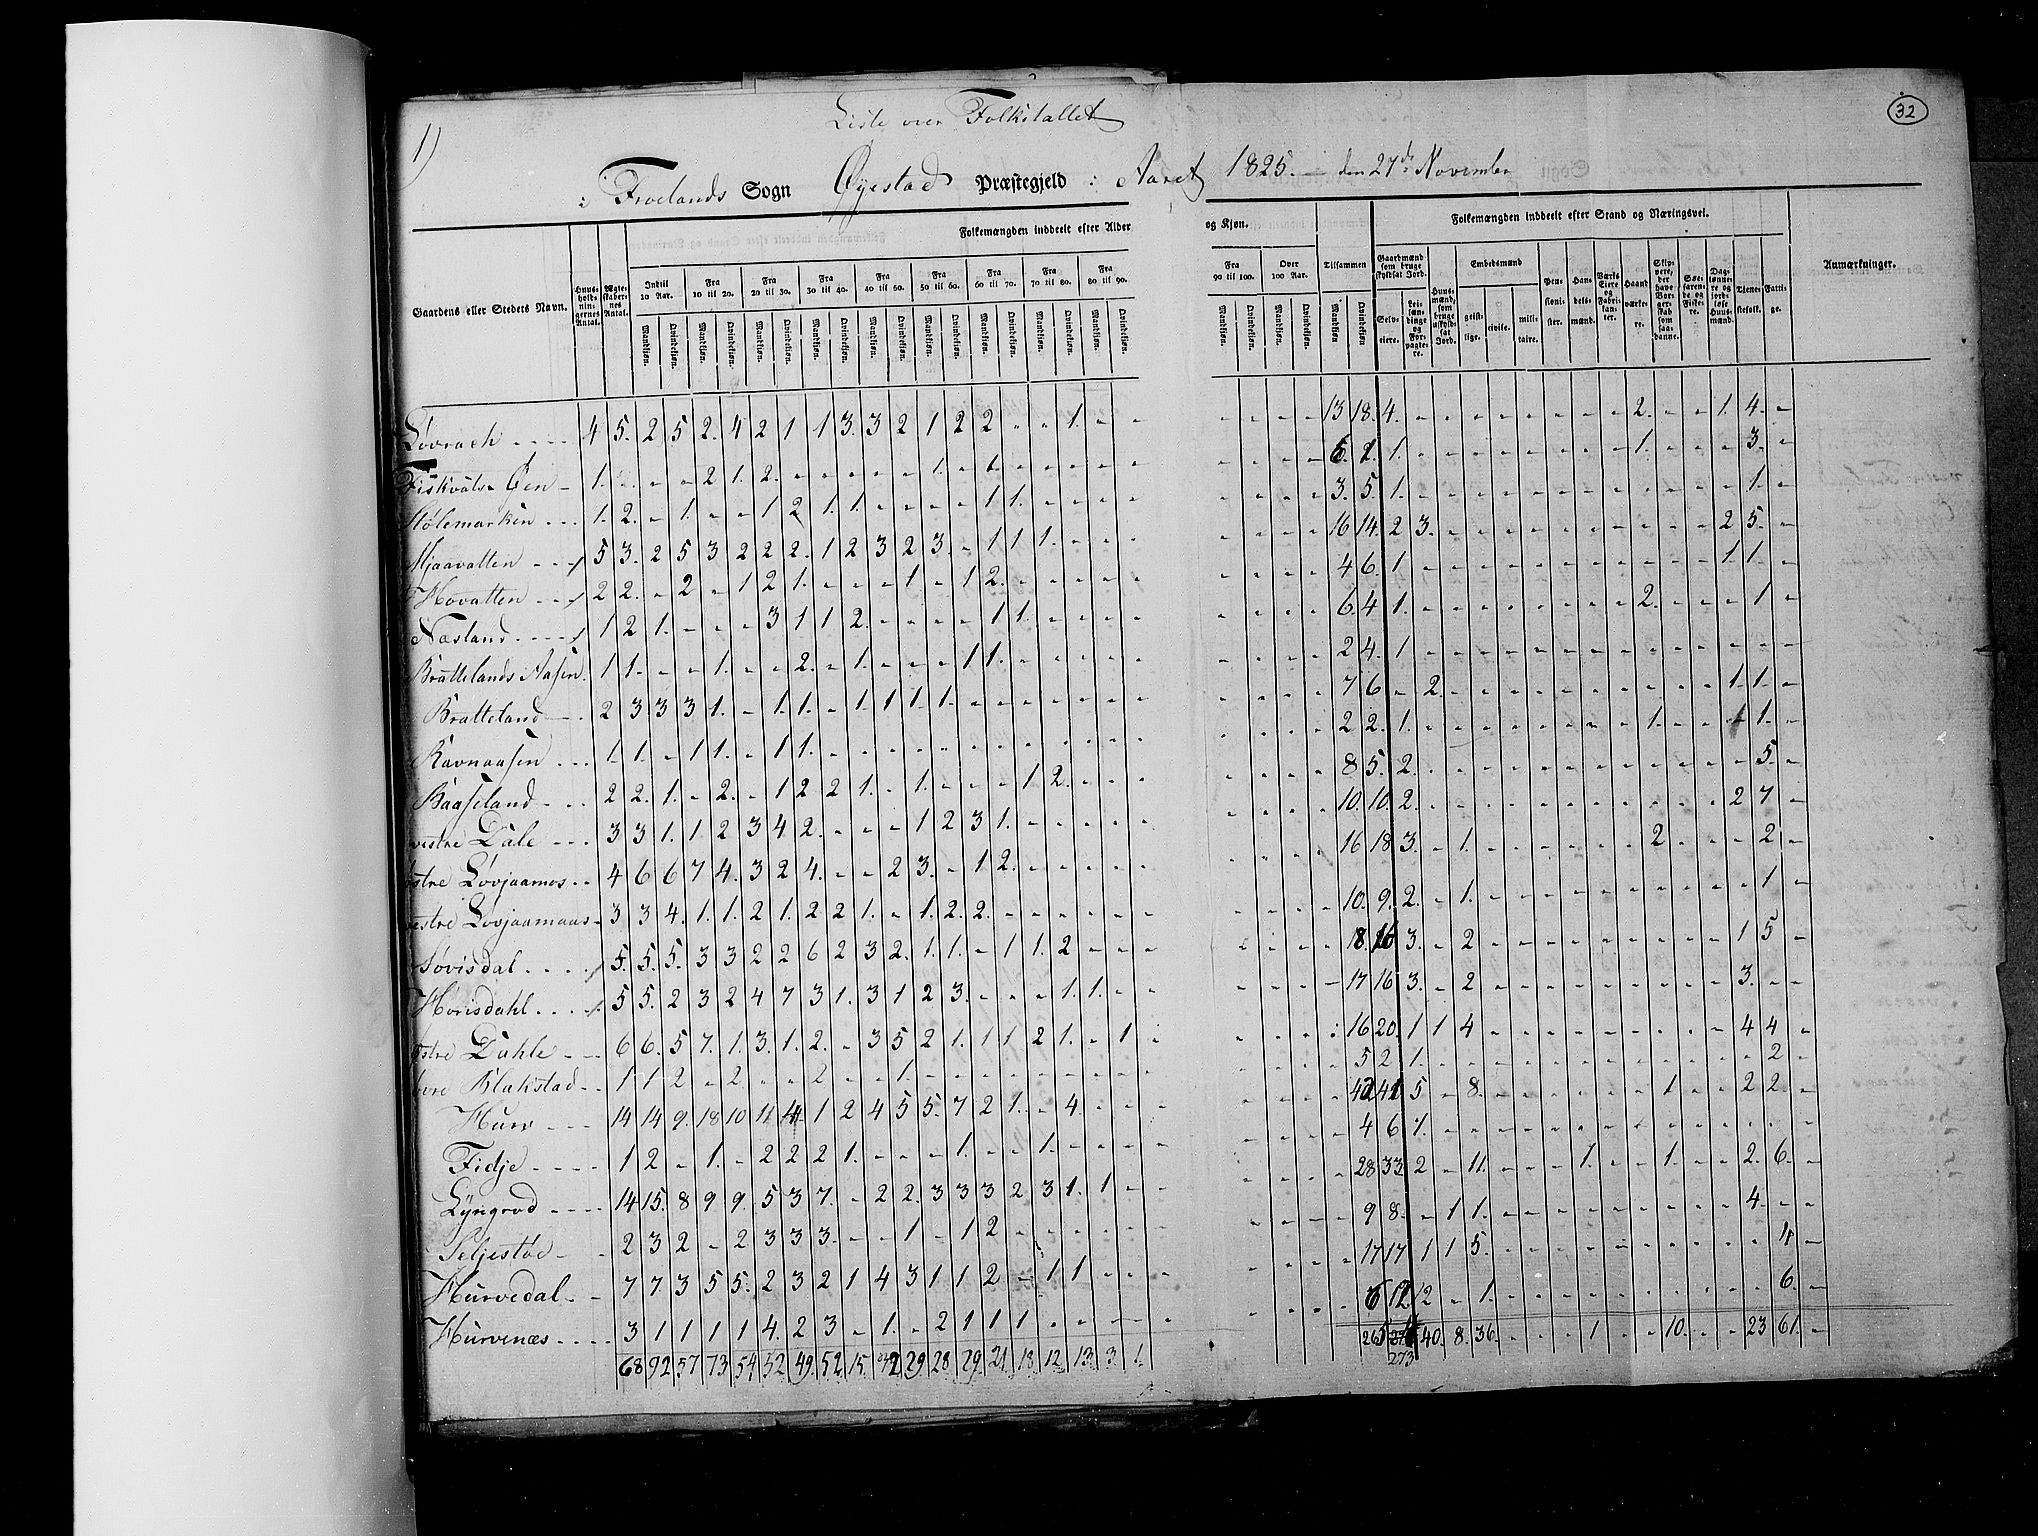 32
1)
Liste over Folketallet
i Froelands Sogn Øyestad Præstegjeld i Aaret 1825. den 27de November
Gaardens eller Stedets Navn.
Huusholdningernes Antal.
Ægteskabernes Antal.
Folkemængden inddeelt efter Alder og Kjøn.
Indtil 10 Aar. Fra 10 til 20. Fra 20 til 30. Fra 30 til 40. Fra 40 til 50. Fra 50 til 60. Fra 60 til 70. Fra 70 til 80. Fra 80 til 90. Fra 90 til 100. Over 100 Aar. Tilsammen
Mandkjøn. Qvindekjøn.
Folkemængden inddeelt efter Stand og Næringsvei.
Gaardmænd som bruge skyldsat Jord.
Selveiere. Leilændinge og Forpagtere.
Huusmænd, som bruge uskyldsat Jord.
Embedsmænd
geistlige. civile. militaire.
Pensionister. Handelsmænd. Værks Eiere og Fabrikanter. Haandværkere. Skippere, der have Borgerskab som saadanne. Søefarende og Fiskere. Daglønnere og jordløse Huusmænd. Tjenestefolk. Fattige.
Anmærkninger.
Løvrach 4 5. 2 5 2. 4 2 1 1 3. 3 2 1 2 2 - - 1. - - - - - - 13 18. 4. - - - - - - - - 2. - - 1. 4. -
Fiskvats Øen 1. - - - 2 1. 2. - - - - - 1. - 1. - - - - - - - - - 6. 2. 1. - - - - - - - - 1. - - - 3. -
Stølemarken 1. 2. - 1. - - 1 2 1. 1. - - - - 1 1. - - - - - - - - 3. 5. 1. - - - - - - - - - - - - 1. -
Mjaavatten 5 3. 2 5 3 2 2 2. 1 2 3 2 3. - 1 1 1. - - - - - - - 16 14. 2 3. - - - - - - - - - - 2 5. -
Hovatten 2 2. - 2 - 1 2 1. - - - 1 - 1 2. - - - - - - - - - 4 6. 1 - - - - - - - - - - - 1. 1. -
Næsland 1 2 1. - - - 3 1 1 2. - - - - 1 1. - - - - - - - - 6. 4 1. - - - - - - - - 2. - - - 1 -
Brattelands Aasen. 1 1. - - 1. - - 2. - 1. - - - 1 1. - - - - - - - - - 2 4. 1 - - - - - - - - - - - - - -
Bratteland 2 3 3 3 1. - 1. 1. - 1 1 1. 1. - - - - - - - - - - - 7 6 - 2. - - - - - - - - - - 1. 1. -
Ravnaasen 1. 1. - 1 1. - 1 1. - - - - - - - - - - - - - - - - 2 2. 1. - - - - - - - - 1. - - 1. -
Baaseland 2 2. 1. - 2. - 1 2 2 1. - 1. - - - 1 2. - - - - - - - 8 5. 2. - - - - - - - - - - - - 5. -
vestre Dale 3 3 1. 1 2 3 4 2. - - - 1 2 3 1. - - - - - - - - - 10. 10. 2. - - - - - - - - - - - 2 7 -
østre Løvjaamos 4 6 6 7 4. 3 2 4. - - 2 3. - 1 2. - - - - - - - - - 16 18 3. - 1. - - - - - - 2 - - - 2 -
vestre Løvjaamaas 3 3 4. 1. 1. 2 1. 2 2 1. - 1. 2. 2. - - - - - - - - - - 10. 9. 2. - 1. - - - - - - - - - - 1 -
Søvisdal 5. 5. 5. 3 3 2 2 6 2 3 2. 1. 1. - 1 1. 2 - - - - - - - 18. 16 3. - 2 - - - - - - - - - 1 5 -
Hørisdahl 5 5. 2 3 2 4 7 3 1. 3 1 2 3. - - - 1. 1. - - - - - - 17 16 3. - 2 - - - - - - - - - 3. - -
østre Dahle 6 6. 5 7. 1. 3. 1. 2. - 3 5 2 1. 1 1 2 1. - 1 - - - - - 16 20. 1 1 4 - - - - - - - - - 4 4 -
Blakstad 1 1 2 - 2 - - 2 - - 1. - - - - - - - - - - - - - 5 2 1. - - - - - - - - - - - - 2 -
Hurv 14 14 9. 18 10 11 4 1 2 4 5 5. 7 2 1. - 4. - - - - - - - 42 41 5 - 8. - - - - - - 1 - - 2 2. -
Fidje 1 2 - 1. - 2 2 2 1. - - - 1. - - 1. - - - - - - - - 4 6 1. - - - - - - - - - - - - - -
Lyngrod 14 15. 8 9 9. 5 3 7. - 2 2. 3 3 3 2 3 1. 1 - - - - - - 28 33 2 - 11. - - - 1. - - 1. - - 2. 6. -
Seljestøe 2 3 2 - 2 3 3 3. - - 1 - 1 2 - - - - - - - - - - 9 8. - 1 1. - - - - - - - - - 4. - -
Hurvedal 7 7. 3 5 5. 2 3 2 1 4 3 1 1 2 - 1 1. - - - - - - - 17 17 1 1 5. - - - - - - - - - - 4 -
Hurvenæs 3 1 1 1 1 4. 2 3 - 1. - 2 1 1 1 - - - - - - - - - 6 12 2 - 1. - - - - - - - - - - 6. -
68 92 57 73 54 52 49. 52 15. 32 29. 28 29. 21 18 12. 13. 3. 1. 265 40. 8. 36. - - - 1 - - 10. - - 23 61. -
273